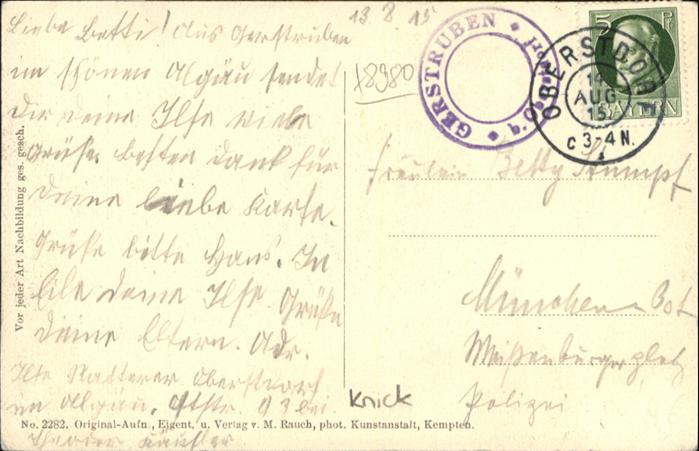 13 8 15
Liebe Betti! Aus Gerstruben
im schönen Algäu sendet
Dir deine Ilse viele
Grüße. Besten Dank für
deine liebe Karte.
Grüße bitte Hans. In
Eile deine Ilse. Grüße
deine Eltern. Adr.
Ilse Natterer Oberstdorf
im Algäu. 93 bei
Theodor
Vor jeder Art Nachbildung ges. gesch.
No. 2282. Original-Aufn., Eigent. u. Verlag v. M. Rauch, phot. Kunstanstalt, Kempten.
18980
GERSTRUBEN
b.
5 Pf
BAYERN
OBERSTDORF
14
AUG
15
C 3-4 N.
Fräulein Betty Stumpf
München Ost
Weißenburgerplatz
Polizei
Knick